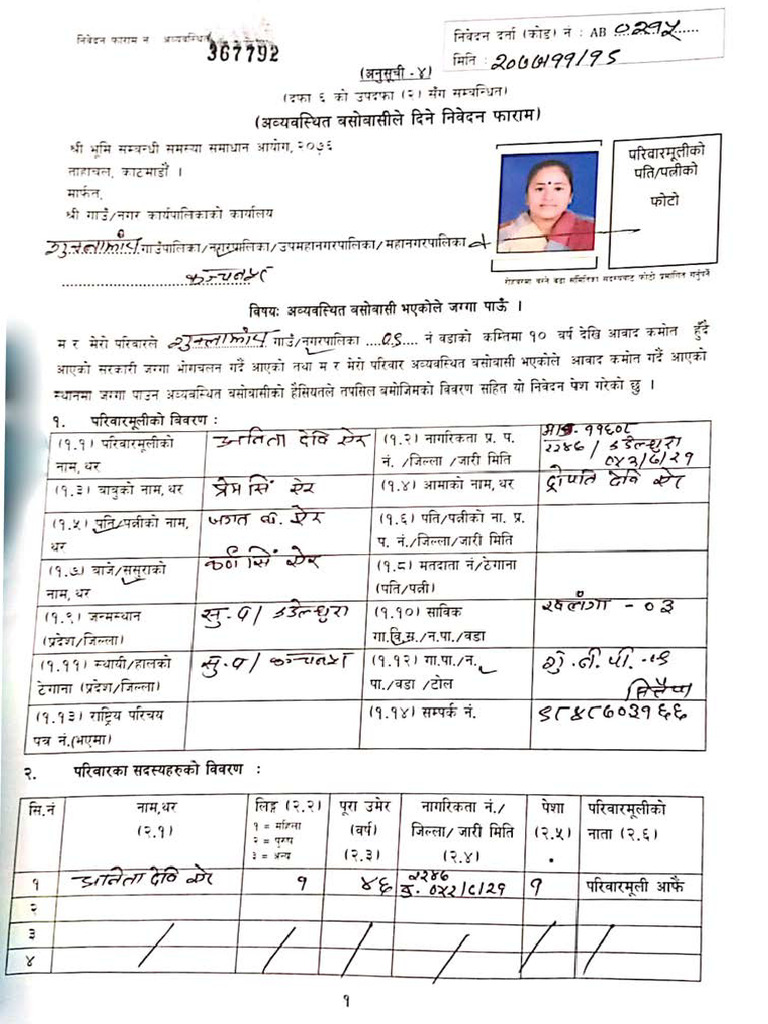 निवेदन फाराम न अव्यवस्थित
367792
निवेदन दर्ता (कोड) नं : AB ०२१५
मिति : २०७७/११/१८
(अनुसूची - ४)
(दफा ६ को उपदफा (२) सँग सम्बन्धित)
(अव्यवस्थित बसोबासीले दिने निवेदन फाराम)
श्री भूमि सम्बन्धी समस्या समाधान आयोग, २०७६
ताहाचल, काटमाडौं ।
मार्फत,
श्री गाउँ/नगर कार्यपालिकाको कार्यालय
शुक्लाफाँटा गाउँपालिका/नगरपालिका/उपमहानगरपालिका/ महानगरपालिका
कञ्चनपुर
परिवारमूलीको
पति/पत्नीको
फोटो
रोहवरमा बस्ने वडा समितिका सदस्यबाट फोटो प्रमाणित गर्नुपर्ने
विषयः अव्यवस्थित बसोवासी भएकोले जग्गा पाऊँ ।
म र मेरो परिवारले शुक्लाफाँटा गाउँ/नगरपालिका ....०९.... नं वडाको कम्तिमा १० बर्ष देखि आवाद कमोत हुँदै
आएको सरकारी जग्गा भोगचलन गर्दै आएको तथा म र मेरो परिवार अव्यवस्थित बसोबासी भएकोले आवाद कमोत गर्दै आएको
स्थानमा जग्गा पाउन अव्यवस्थित बसोबासीको हैसियतले तपसिल बमोजिमको विवरण सहित यो निवेदन पेश गरेको छु ।
१. परिवारमूलीको विवरण :
(१.१) परिवारमूलीको नाम, थर अनिता देवि ऐर (१.२) नागरिकता प्र. प. नं. /जिल्ला /जारी मिति २२४७ / डडेल्धुरा
(१.३) बाबुको नाम, थर प्रेम सिं ऐर (१.४) आमाको नाम, थर द्रोपति देवि ऐर
(१.५) पति/पत्नीको नाम, थर जगत ब. ऐर (१.६) पति/पत्नीको ना. प्र. प. नं./जिल्ला/जारी मिति
(१.७) बाजे/ससुराको नाम, थर कर्ण सिं ऐर (१.८) मतदाता नं/टेगाना (पति/पत्नी)
(१.९) जन्मस्थान (प्रदेश/जिल्ला) सु.प/ डडेल्धुरा (१.१०) साविक गा.वि.स./न.पा./वडा खलंगा - ०३
(१.११) स्थायी/हालको टेगाना (प्रदेश/जिल्ला) सु.प/ कञ्चनपुर (१.१२) गा.पा./न. पा./वडा /टोल शु.न.पा.-०९
(१.१३) राष्ट्रिय परिचय पत्र नं.(भएमा) (१.१४) सम्पर्क नं. ९८४८७०३१६६
२. परिवारका सदस्यहरुको विवरण :
सि.नं नाम,थर (२.१) लिङ्ग (२.२) १ = महिला २ = पुरुष ३ = अन्य पूरा उमेर (वर्ष) (२.३) नागरिकता नं./ जिल्ला/ जारी मिति (२.४) पेशा (२.५) परिवारमूलीको नाता (२.६)
१ अनिता देवि ऐर १ ४६ २२४७ १ परिवारमूली आफैं
२
३
४
१